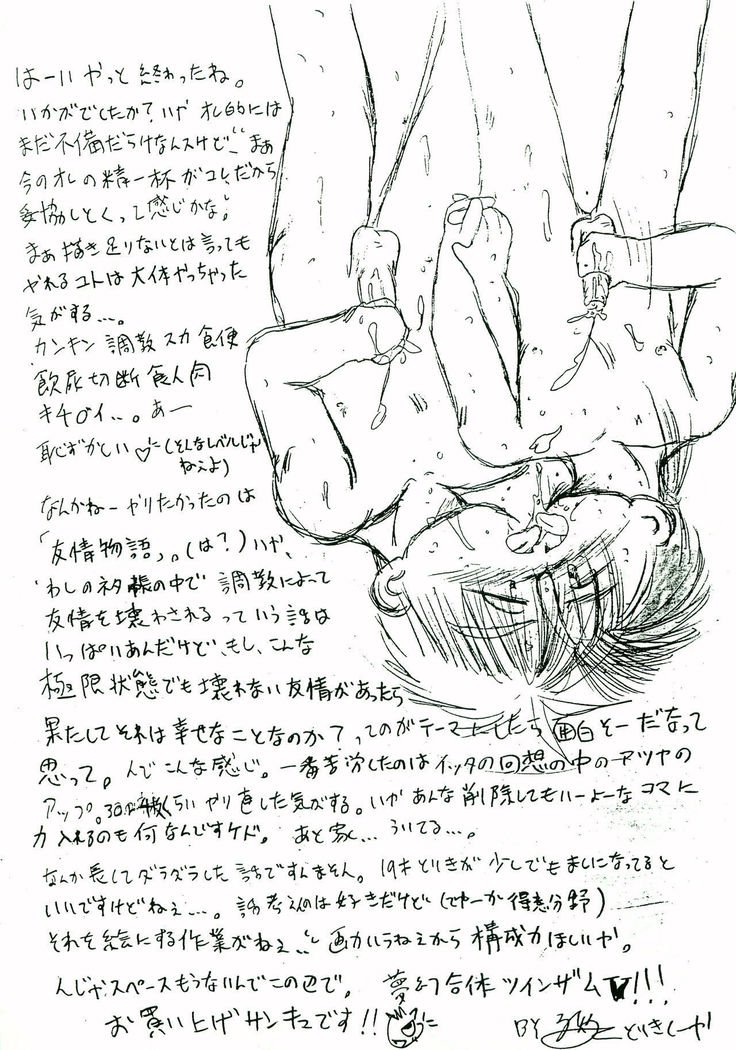 はーいやっと終わったね。
いかがでしたか?いや オレ的には
まだ不備だらけなんスけど、まぁ
今のオレの精一杯がコレだから
妥協しとくって感じかな。
まぁ描き足りないとは言っても
やれるコトは大体やっちゃった
気がする…。
カンキン 調教 スカ 食便
飲尿 切断 食人肉
キチ○イ…。あー
恥ずかしい♡(そんなレベルじゃ
ねぇよ)
なんかねーやりたかったのは
「友情物語」。(は?)いや、
わしのネタ帳の中で 調教によって
友情を壊わされるっていう話は
いっぱいあんだけど、もし、こんな
極限状態でも壊れない友情があったら
果たしてそれは幸せなことなのか?ってのがテーマにしたら面白そーだなって
思って。んでこんな感じ。一番苦労したのはイッタの回想の中のアツヤの
アップ。30回くらいやり直した気がする。いやあんな削除してもいーよーなコマに
力入れるのも何なんですケド。あと
なんか長くてダラダラした話ですんません。19才どりきが少しでもましになってると
いいですけどねぇ…。話考えんのは好きだけど(てゆーか得意分野)
それを絵にする作業がねぇ、画力いらねぇから構成力ほしいや。
んじゃスペースもうないんでこの辺で。 夢幻合体ツインザムV!!!
お買い上げサンキュです!!
BY どりきしーや